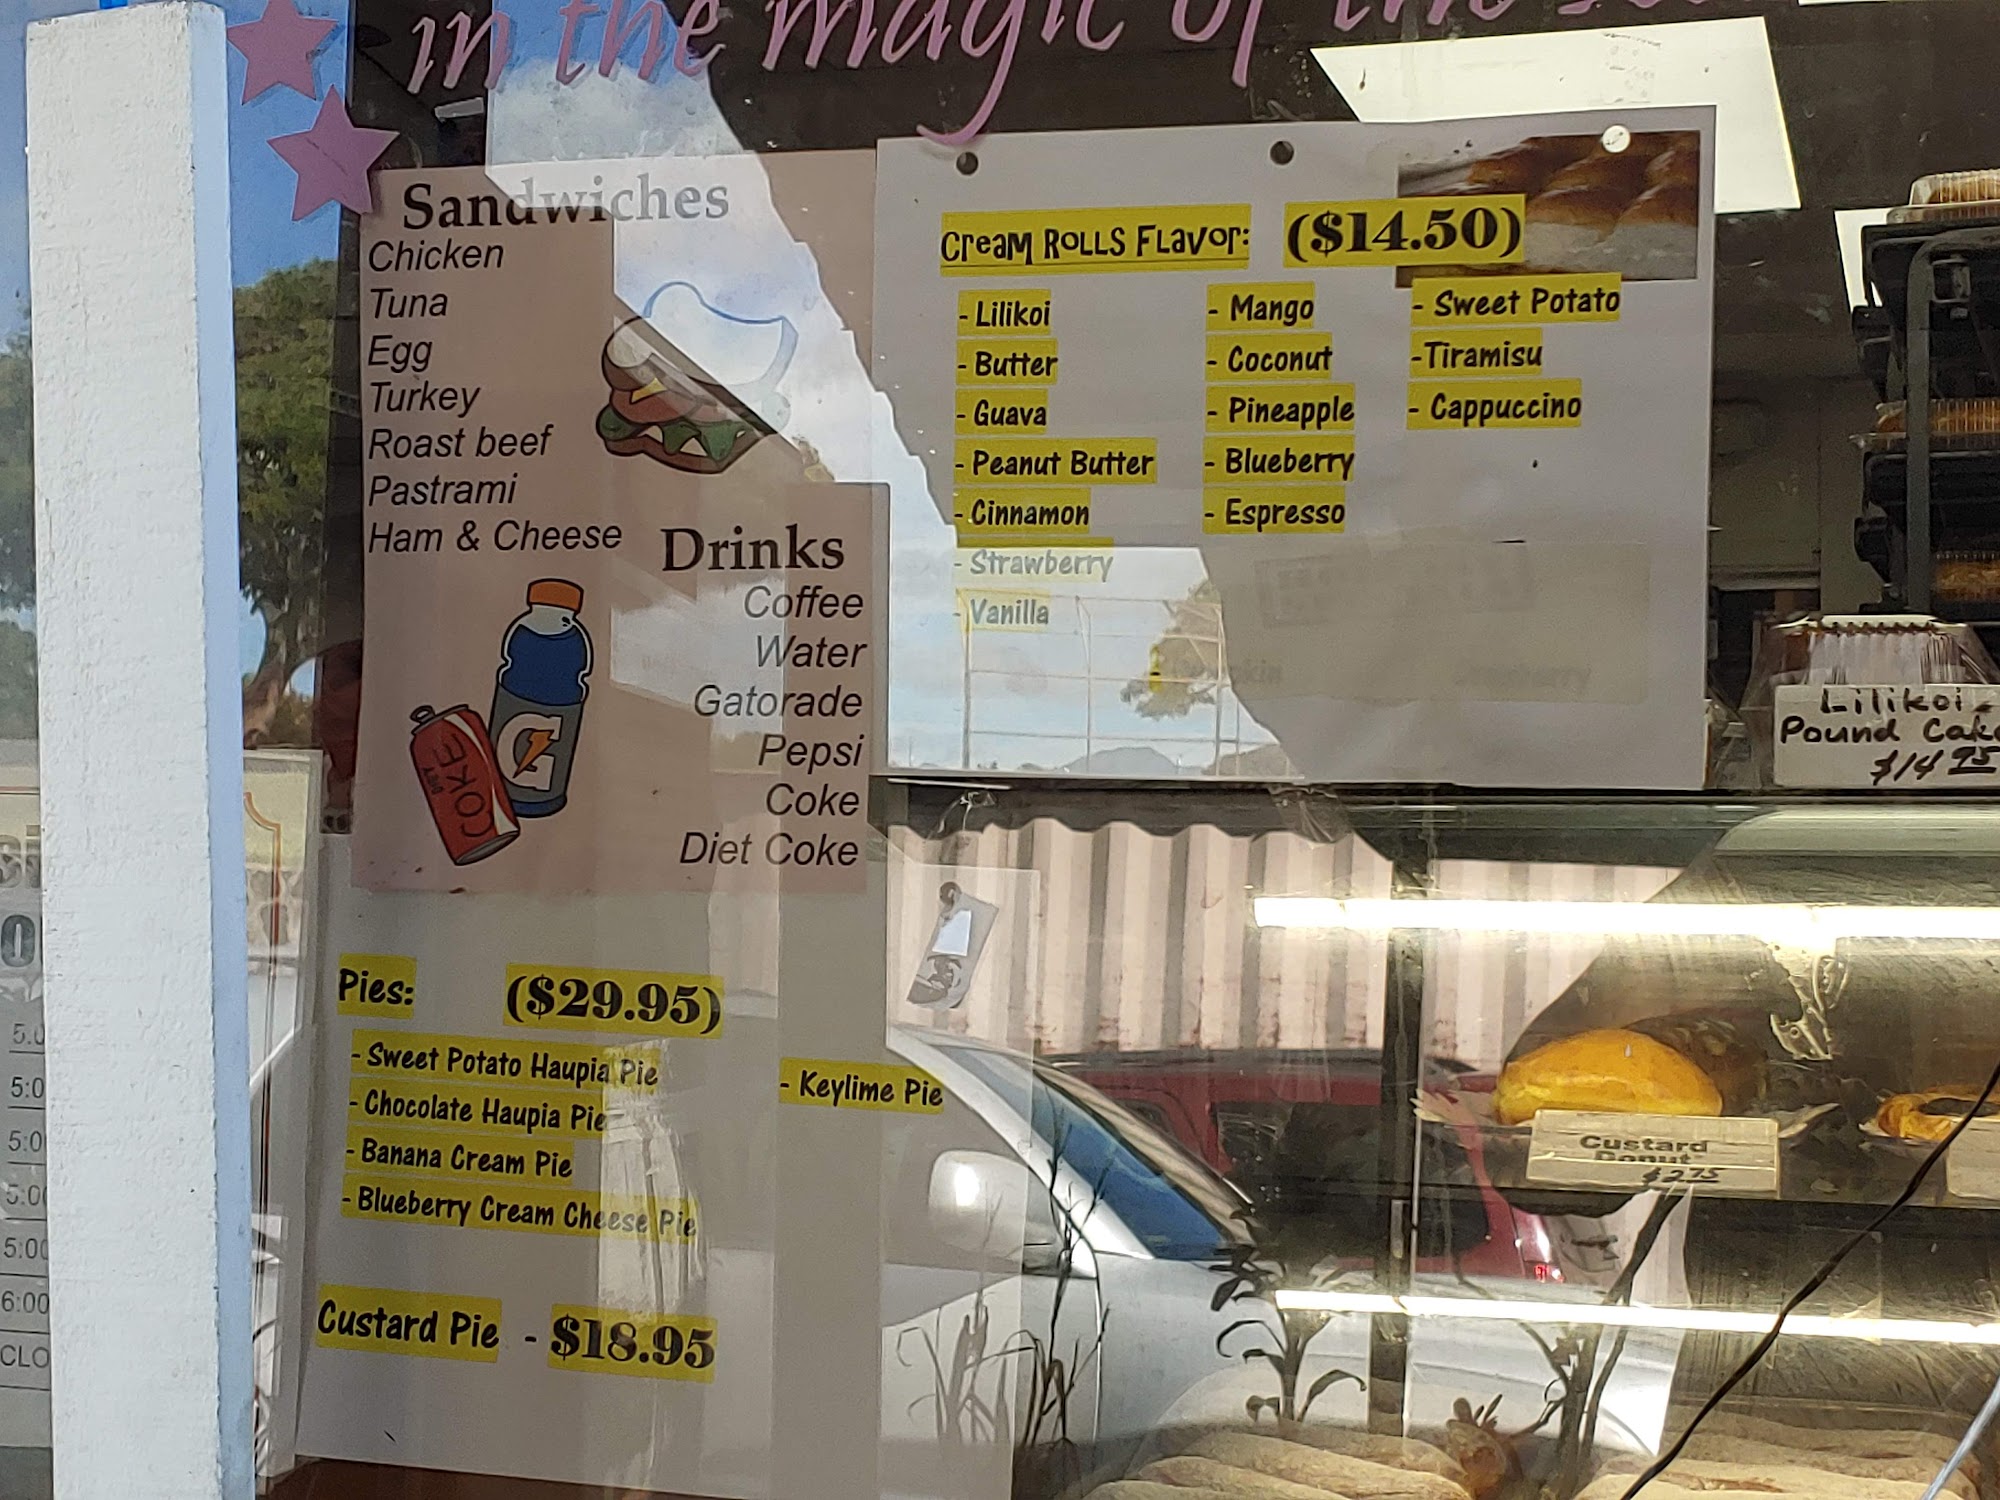 in the magic of the
Sandwiches
Chicken
Tuna
Egg
Turkey
Roast beef
Pastrami
Ham & Cheese
Drinks
Coffee
Water
Gatorade
Pepsi
Coke
Diet Coke
G
DIET
COKE
Cream Rolls Flavor: ($14.50)
- Lilikoi
- Butter
- Guava
- Peanut Butter
- Cinnamon
- Strawberry
- Vanilla
- Mango
- Coconut
- Pineapple
- Blueberry
- Espresso
- Sweet Potato
-Tiramisu
- Cappuccino
Lilikoi
Pound Cake
$14.95
Pies: ($29.95)
- Sweet Potato Haupia Pie
- Chocolate Haupia Pie
- Banana Cream Pie
- Blueberry Cream Cheese Pie
- Keylime Pie
Custard Pie - $18.95
Custard
Donut
$2.75
5:0
5:0
5:00
5:00
6:00
CLO